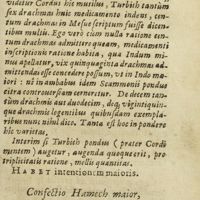 uidetur Cordus hic mutilus, Turbith tantum
sex drachmas huic medicamento indens, cen-
tum drachmas in Mesuæ scriptum fuisse dicen-
tibus multis. Ego verò cum nulla ratione cen-
tum drachmas admittere queam, medicamenti
inscriptionis ratione habita, quia Indum mi-
nus apellatur, vix quinquaginta drachmas ad-
mittendas esse concedere possum, vt in Indo ma-
iori: ni in ambobus idem Scammonij pondus
citra controuersiam cerneretur. De decem tan-
tùm drachmis aut duodecim, deq; viginti quin-
que drachmis legentibus quibusdam exempla-
ribus nunc nihil dico. Tanta est hoc in pondere
hîc varietas.
Interim si Turbith pondus (præter Cordi
mentem) augetur, augenda quoque erit, pro
triplicitatis ratione, mellis quantitas.
HABET intentionem maioris.
Confectio Hamech maior,